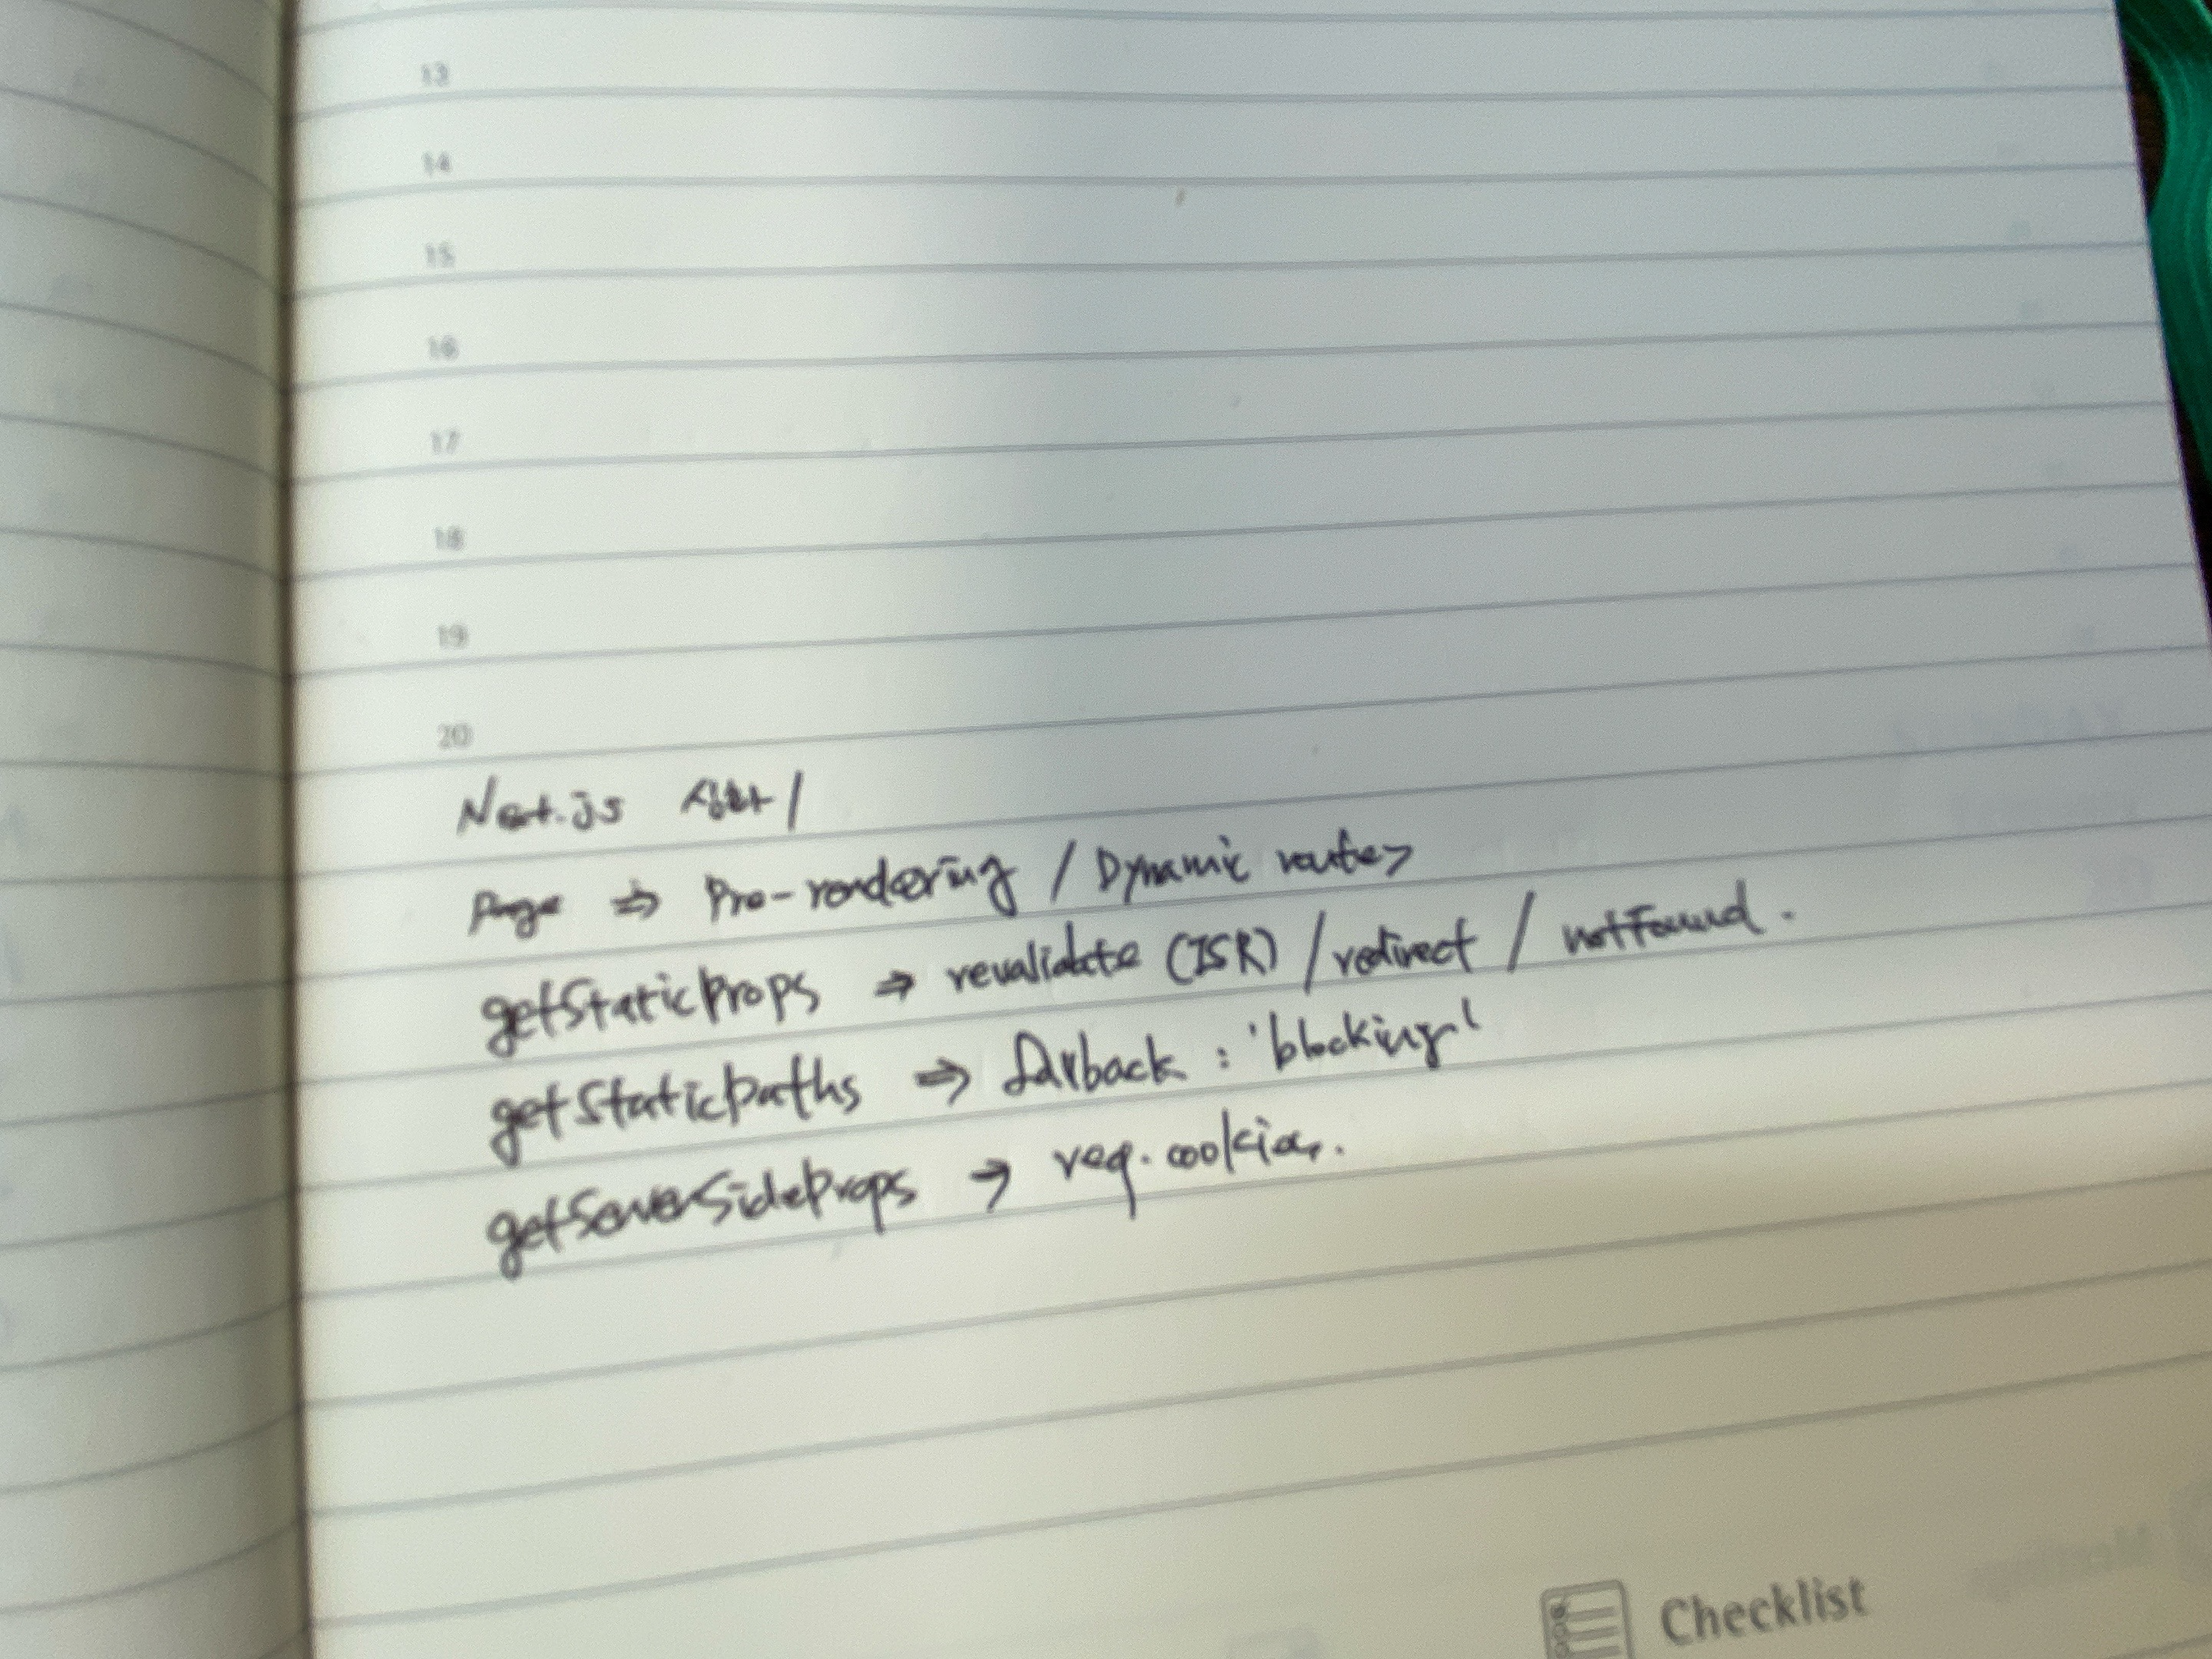 13
14
15
16
17
18
19
20
Next.js 심화 /
Page ⇒ Pre-rendering / Dynamic routes
getStaticProps ⇒ revalidate (ISR) / redirect / notFound.
getStaticPaths ⇒ fallback : 'blocking'
getServerSideProps → req.cookies.
Checklist